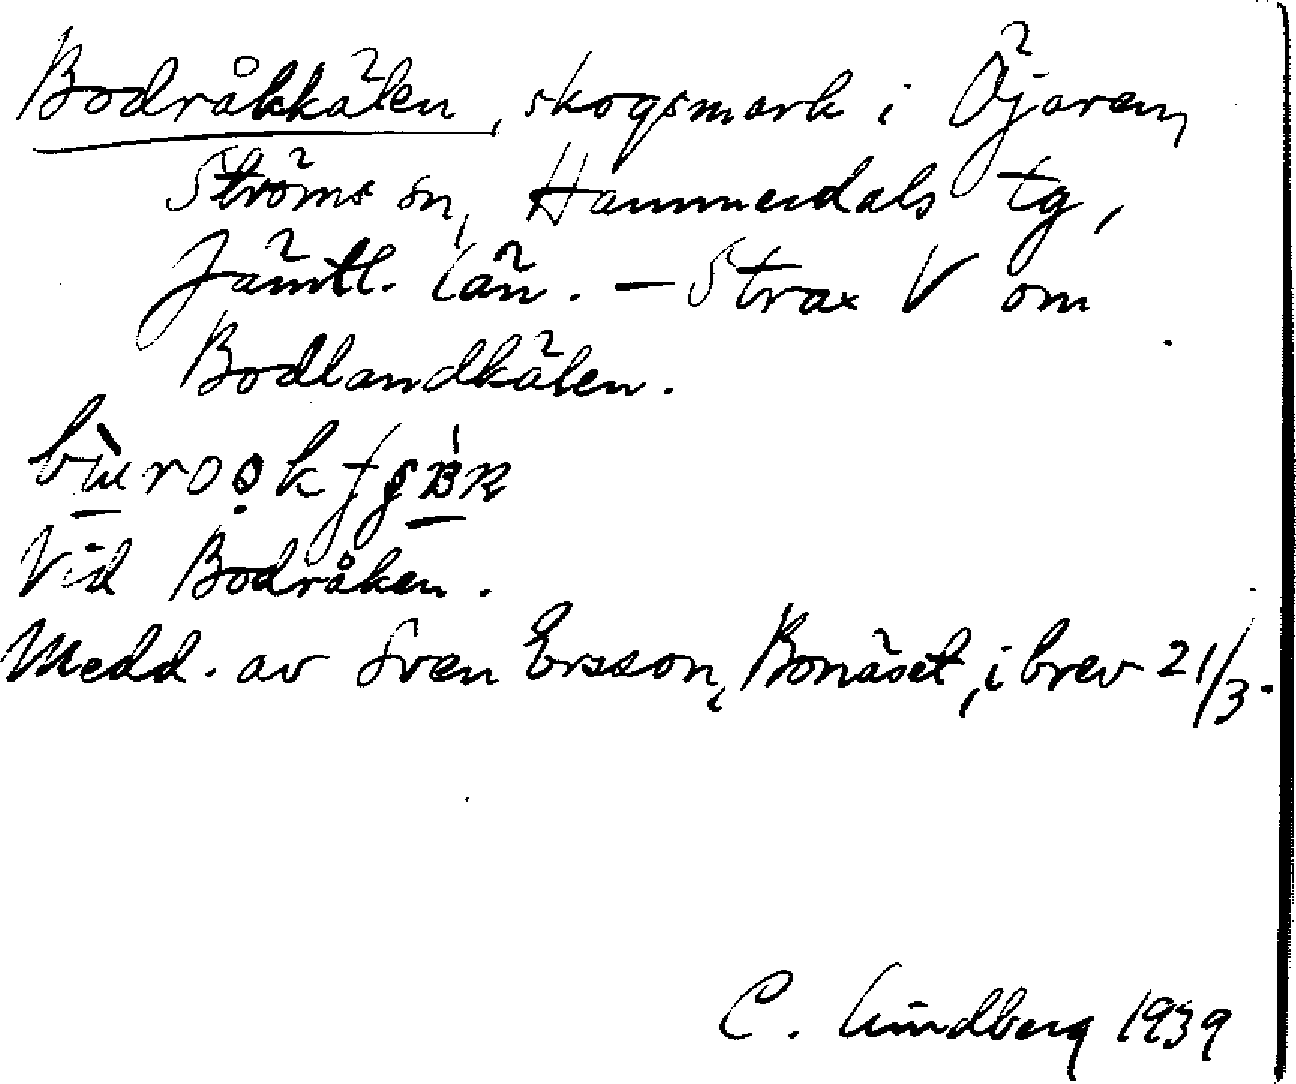 Bodråkkälen, skogsmark i Öjaren,
Ströms sn, Hammerdals tg,
Jämtl. län. – Strax V om
Bodlandkälen.
Vid Bodråken.
Medd. av Sven Ersson, Bonäset, i brev 21/3.
C. Lindberg 1939